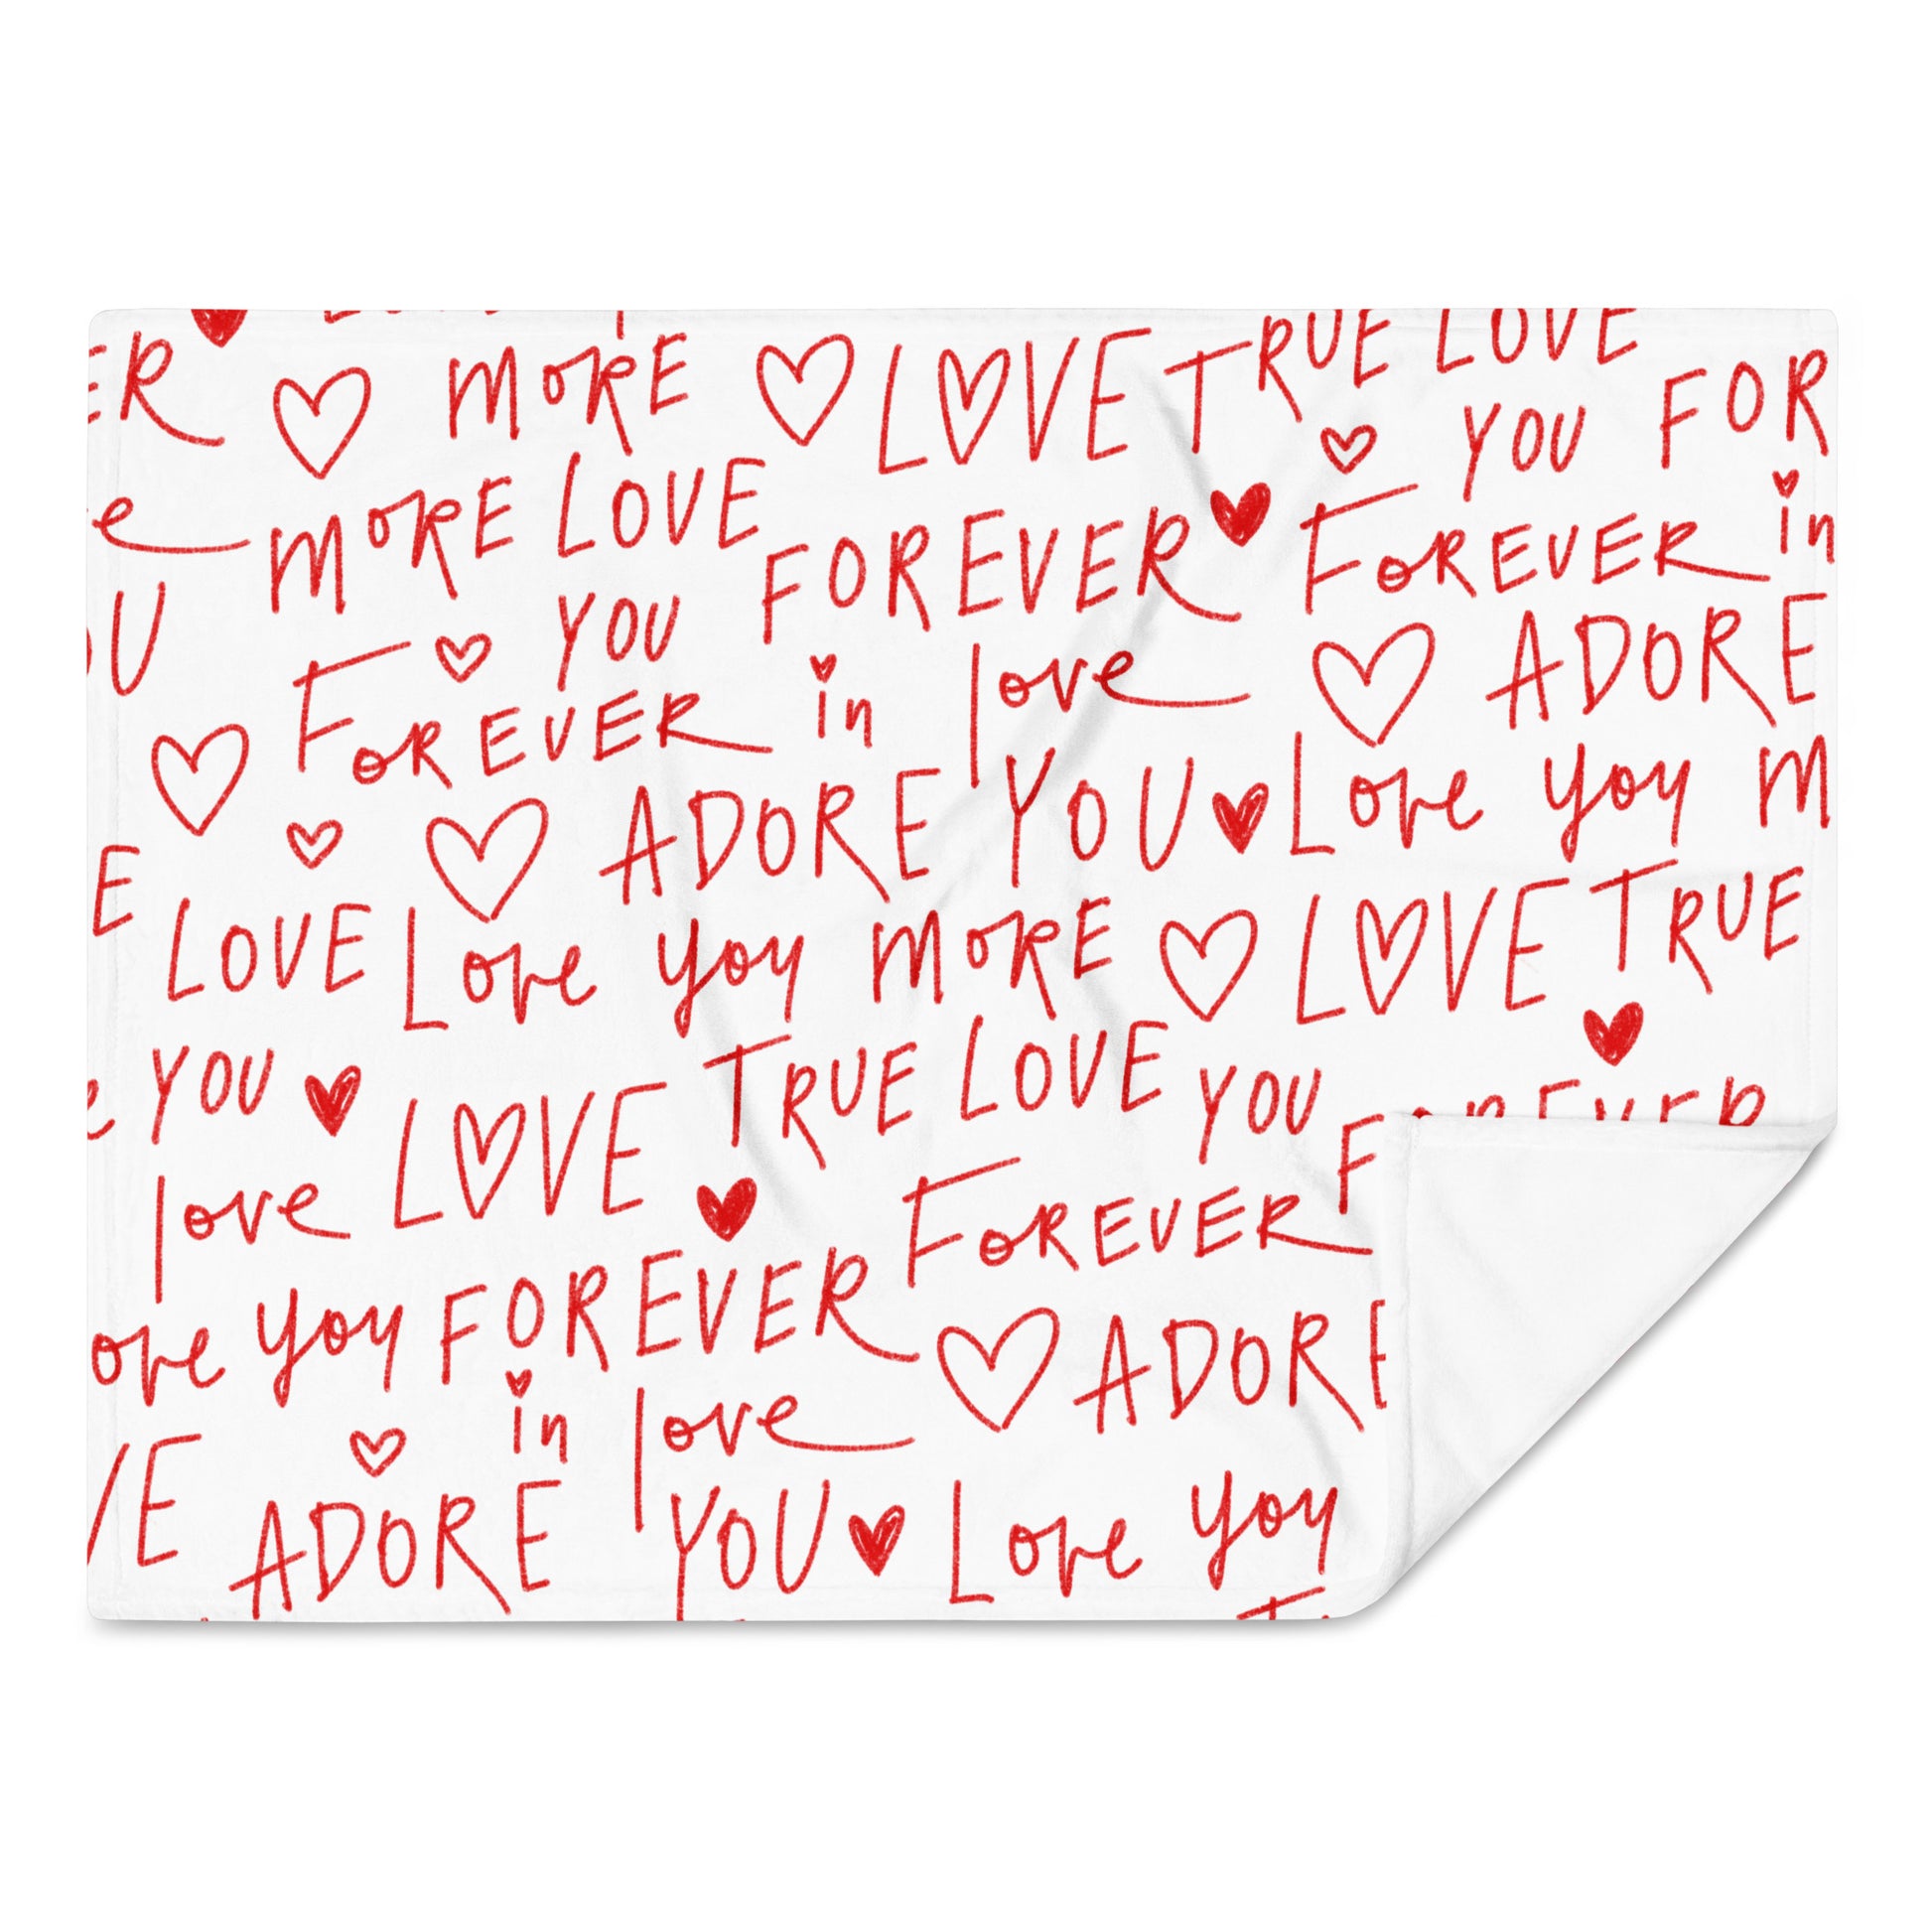 ER MORE LOVE TRUE LOVE
YOU FOR
e MORE LOVE FOREVER FOREVER in
U YOU love ADORE
FOREVER in
ADORE YOU Love you M
E LOVE Love you MORE LOVE TRUE
YOU LOVE TRUE LOVE YOU FOREVER
love FOREVER
ove you FOREVER ADORE
in love
VE ADORE YOU Love you